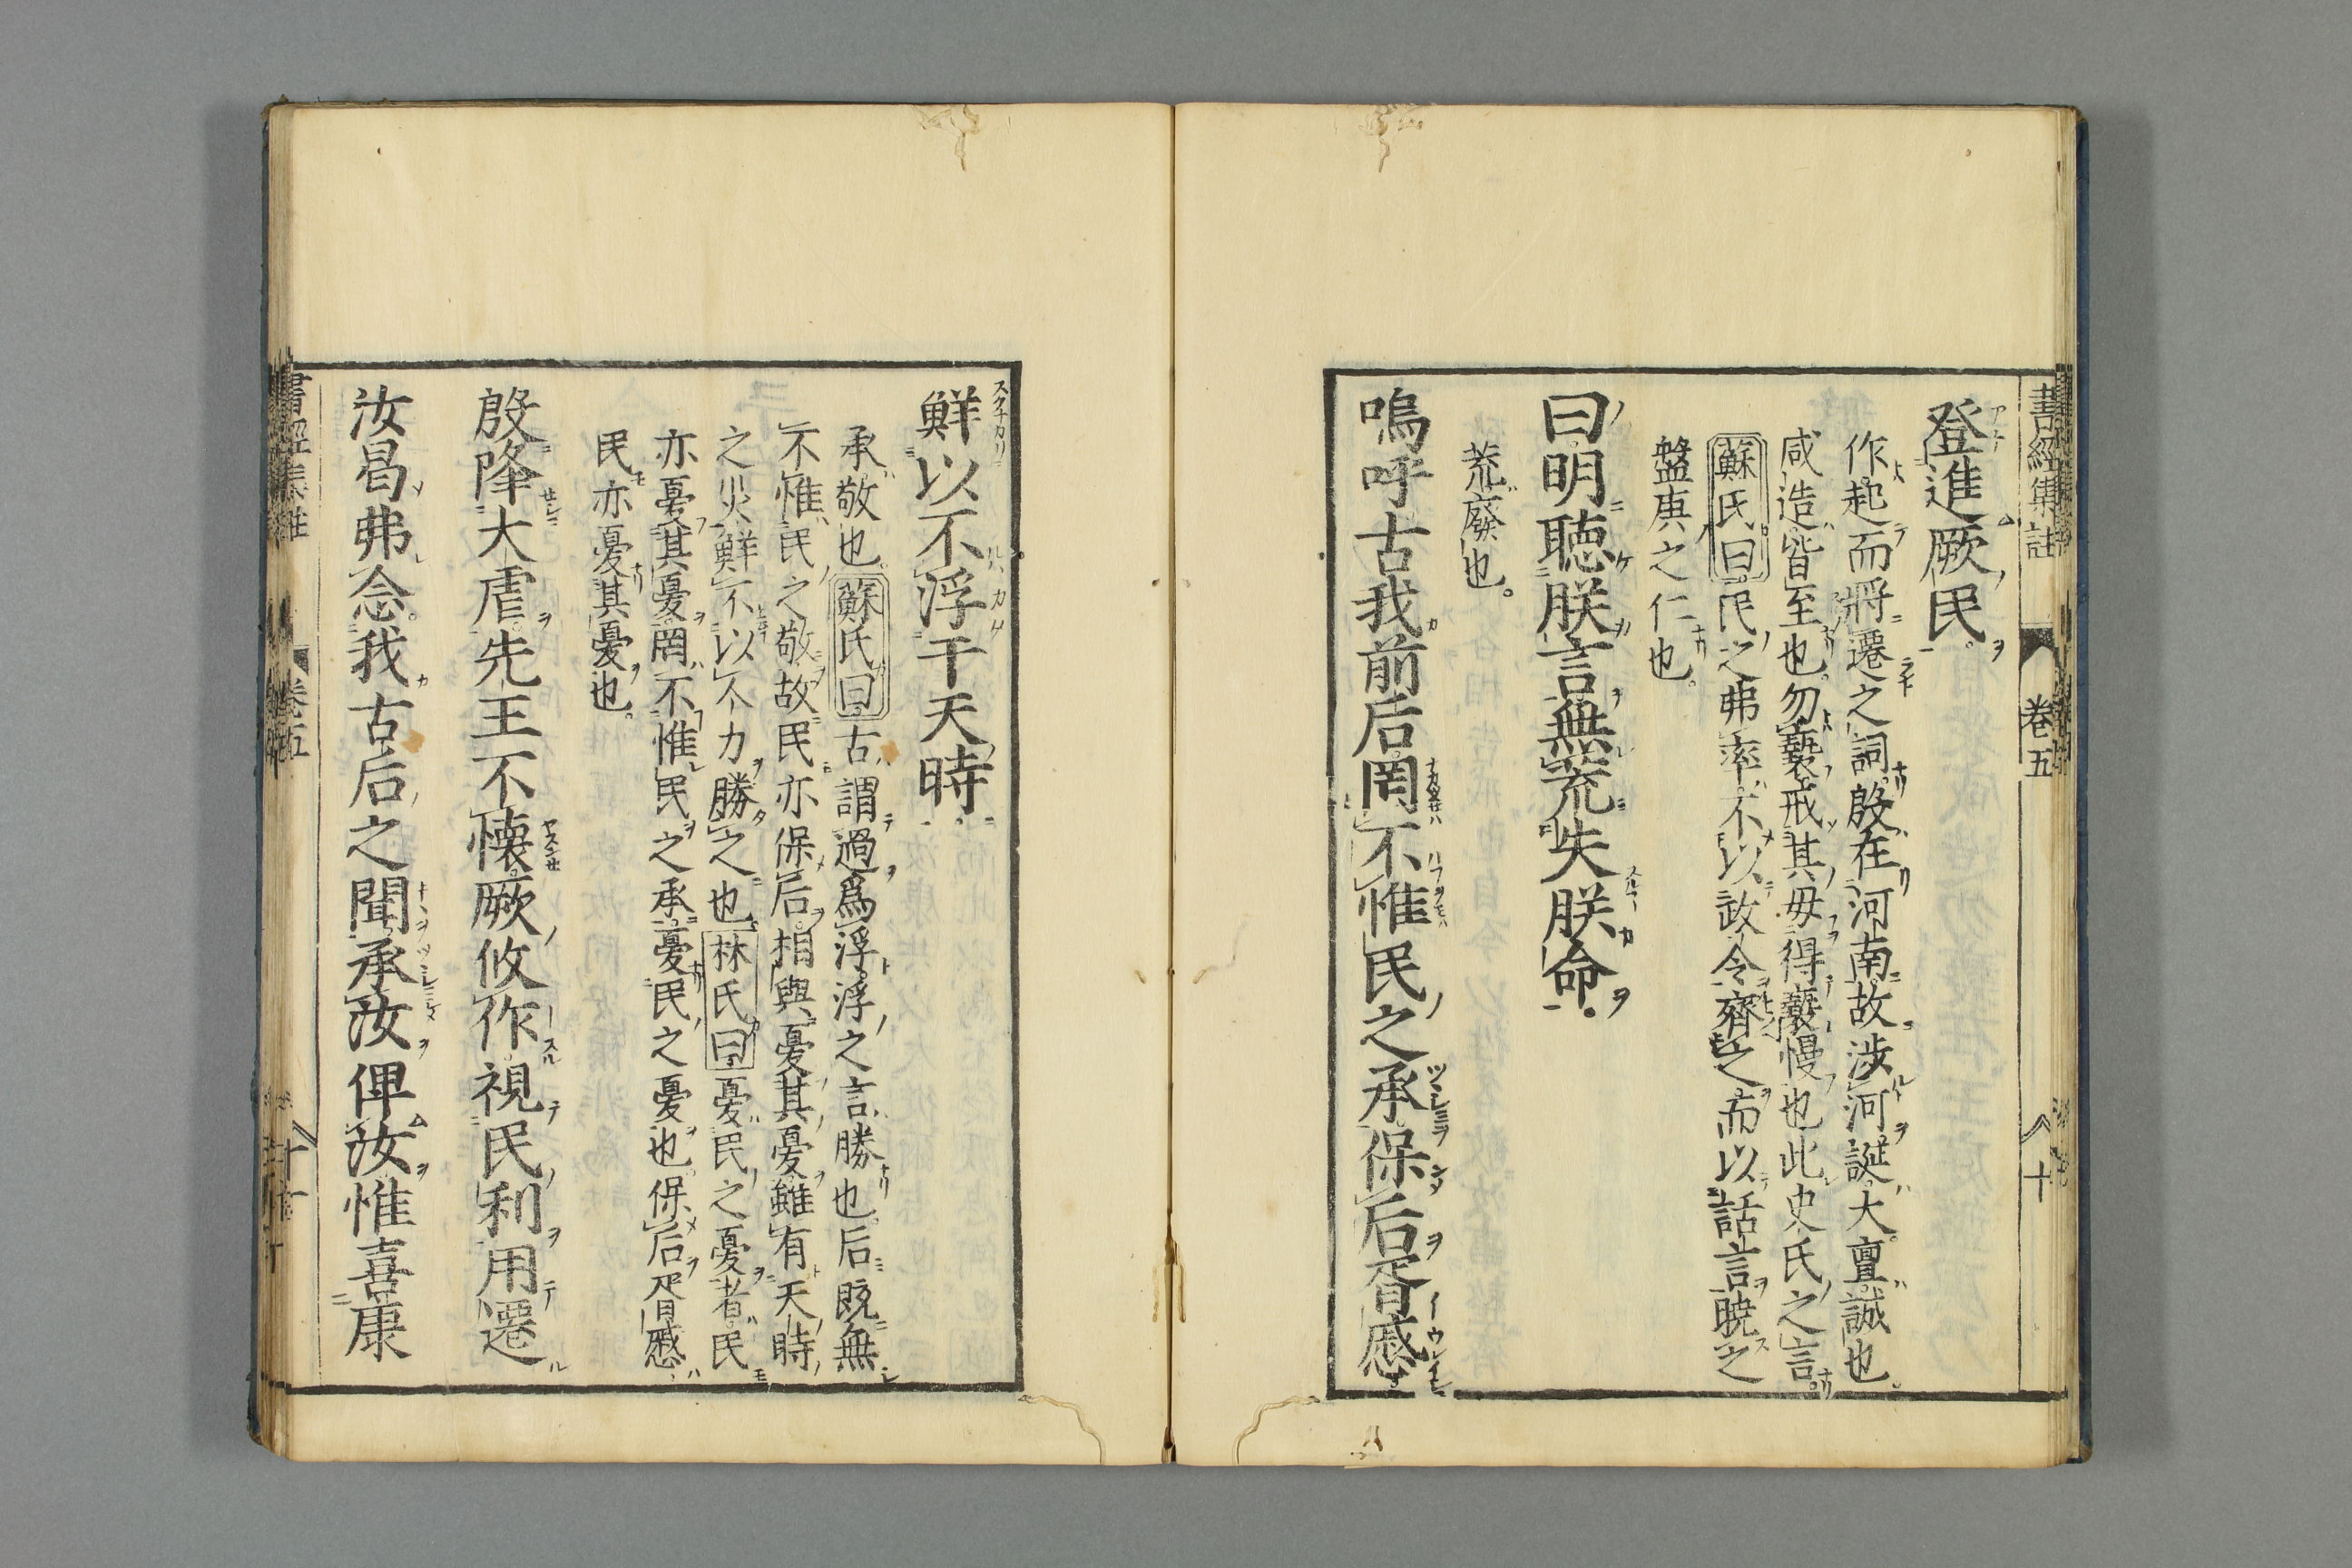 書經集註 卷五 十
登進厥民。
作起而將遷之詞殷在河南故涉河誕大亶誠也。
咸造皆至也。勿褻戒其毋得褻慢也此史氏之言。
蘇氏曰民之弗率不以政令齊之而以話言曉之
盤庚之仁也。
曰明聽朕言無荒失朕命。
荒廢也。
嗚呼古我前后罔不惟民之承保后胥慼
鮮以不浮于天時。
承敬也。蘇氏曰古謂過爲浮浮之言勝也后既無
不惟民之敬故民亦保后相與憂其憂雖有天時
之災鮮不以人力勝之也林氏曰憂民之憂者民
亦憂其憂罔不惟民之承憂民之憂也保后胥慼
民亦憂其憂也。
殷降大虐先王不懷厥攸作視民利用遷
汝曷弗念我古后之聞承汝俾汝惟喜康
書經集註 卷五 十一